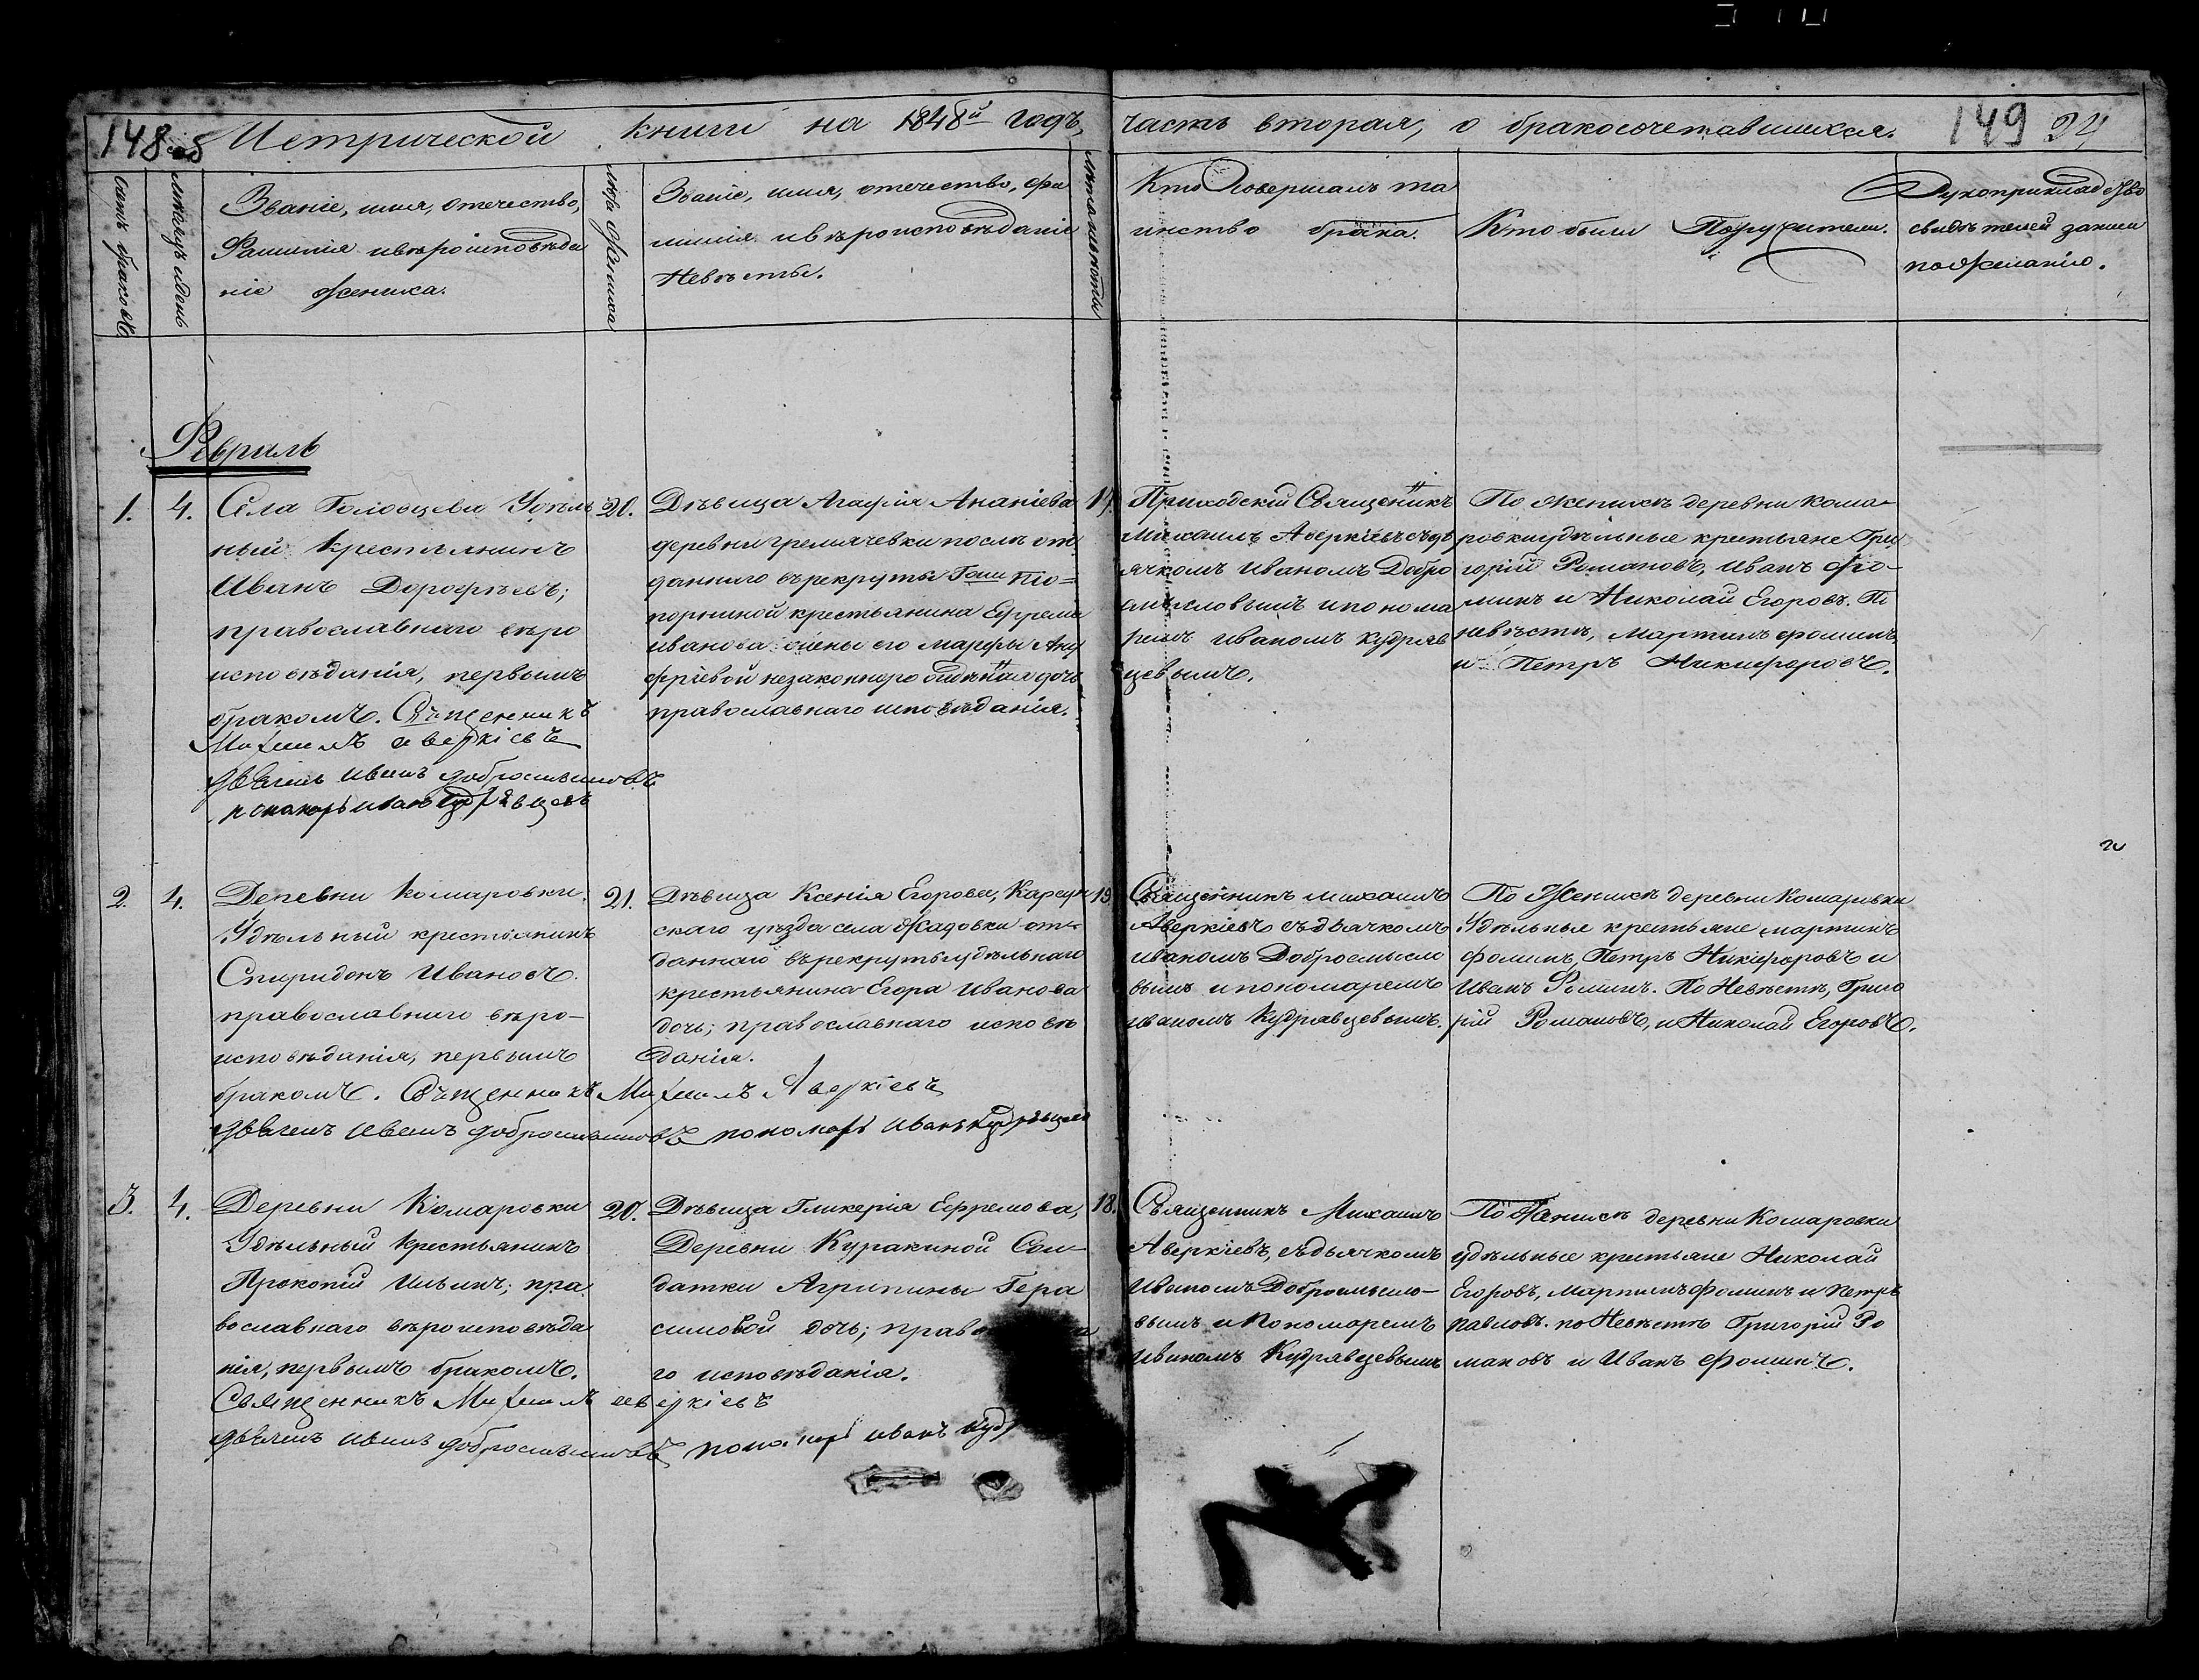 148 об Метрической книги на 1848й годъ, часть вторая, о бракосочетавшихся. 149 24
Счетъ браковъ
Мѣсяцъ и день
Званіе, имя, отечество,
Фамилія и вѣроисповѣда
ніе жениха.
Лѣта жениха
Званіе, имя, отечество, фа
милія и вѣроисповѣданіе
Невѣсты.
Лѣта невѣсты
Кто совершалъ та
инство брака.
Кто были Поручители.
Рукоприкладство
свидѣтелей записи
по желанію.
Февраль
1. 4.
Села Головцева Удѣль
ный крестьянинъ
Иванъ Дорофѣевъ;
православнаго вѣро
исповѣданія, первымъ
бракомъ. Священникъ
Михаилъ Аверкіевъ
дьячекъ Иванъ Добросмысловъ
пономарь Иванъ Кудрявцевъ
20.
Дѣвица Агафія Ананіева
деревни Гремячевки послѣ от
даннаго въ рекруты
крестьянина Ефрема
Иванова жены его Марфы Ану
фріевой незаконнорожденная дочь
православнаго исповѣданія.
Приходскій Священникъ
Михаилъ Аверкіевъ съ дь
ячкомъ Иваномъ Добро
смысловымъ и понома
ремъ Иваномъ Кудряв
цевымъ.
По женихѣ деревни Кома-
ровки удѣльные крестьяне Гри
горій Романовъ, Иванъ Фо-
минъ и Николай Егоровъ. По
невѣстѣ, Мартинъ Фоминъ
и Петръ Никифоровъ.
2. 4.
Деревни Комаровки
Удѣльный крестьянинъ
Спиридонъ Ивановъ.
православнаго вѣро-
исповѣданія, первымъ
бракомъ. Священникъ Михаилъ Аверкіевъ
дьячекъ Иванъ Добросмысловъ пономарь Иванъ Кудрявцевъ
21.
Дѣвица Ксенія Егорова, Карсун
скаго уѣзда села Жадовки от-
даннаго въ рекруты удѣльнаго
крестьянина Егора Иванова
дочь; православнаго исповѣ
данія.
19.
Священникъ Михаилъ
Аверкіевъ съ дьячкомъ
Иваномъ Добросмысло
вымъ и пономаремъ
Иваномъ Кудрявцевымъ.
По Женихѣ деревни Комаровки
Удѣльные крестьяне Мартинъ
Фоминъ, Петръ Никифоровъ и
Иванъ Фоминъ. По Невѣстѣ, Григо
рій Романовъ, и Николай Егоровъ.
3. 4.
Деревни Комаровки
Удѣльный крестьянинъ
Прокопій Ильинъ; пра
вославнаго вѣроисповѣда
нія, первымъ бракомъ.
Священникъ Михаилъ Аверкіевъ
дьячекъ Иванъ Добросмысловъ пономарь Иванъ Куд
20.
Дѣвица Гликерія Ефремова,
Деревни Куракиной Сол-
датки Агрипины Гера
симовой дочь; прав
го исповѣданія.
18.
Священникъ Михаилъ
Аверкіевъ, съ дьячкомъ
Иваномъ Добросмысло-
вымъ и Пономаремъ
Иваномъ Кудрявцевымъ
По Женихѣ деревни Комаровки
удѣльные крестьяне Николай
Егоровъ, Мартинъ Фоминъ и Петръ
Павловъ. по Невѣстѣ Григорій Ро
мановъ и Иванъ Фоминъ.